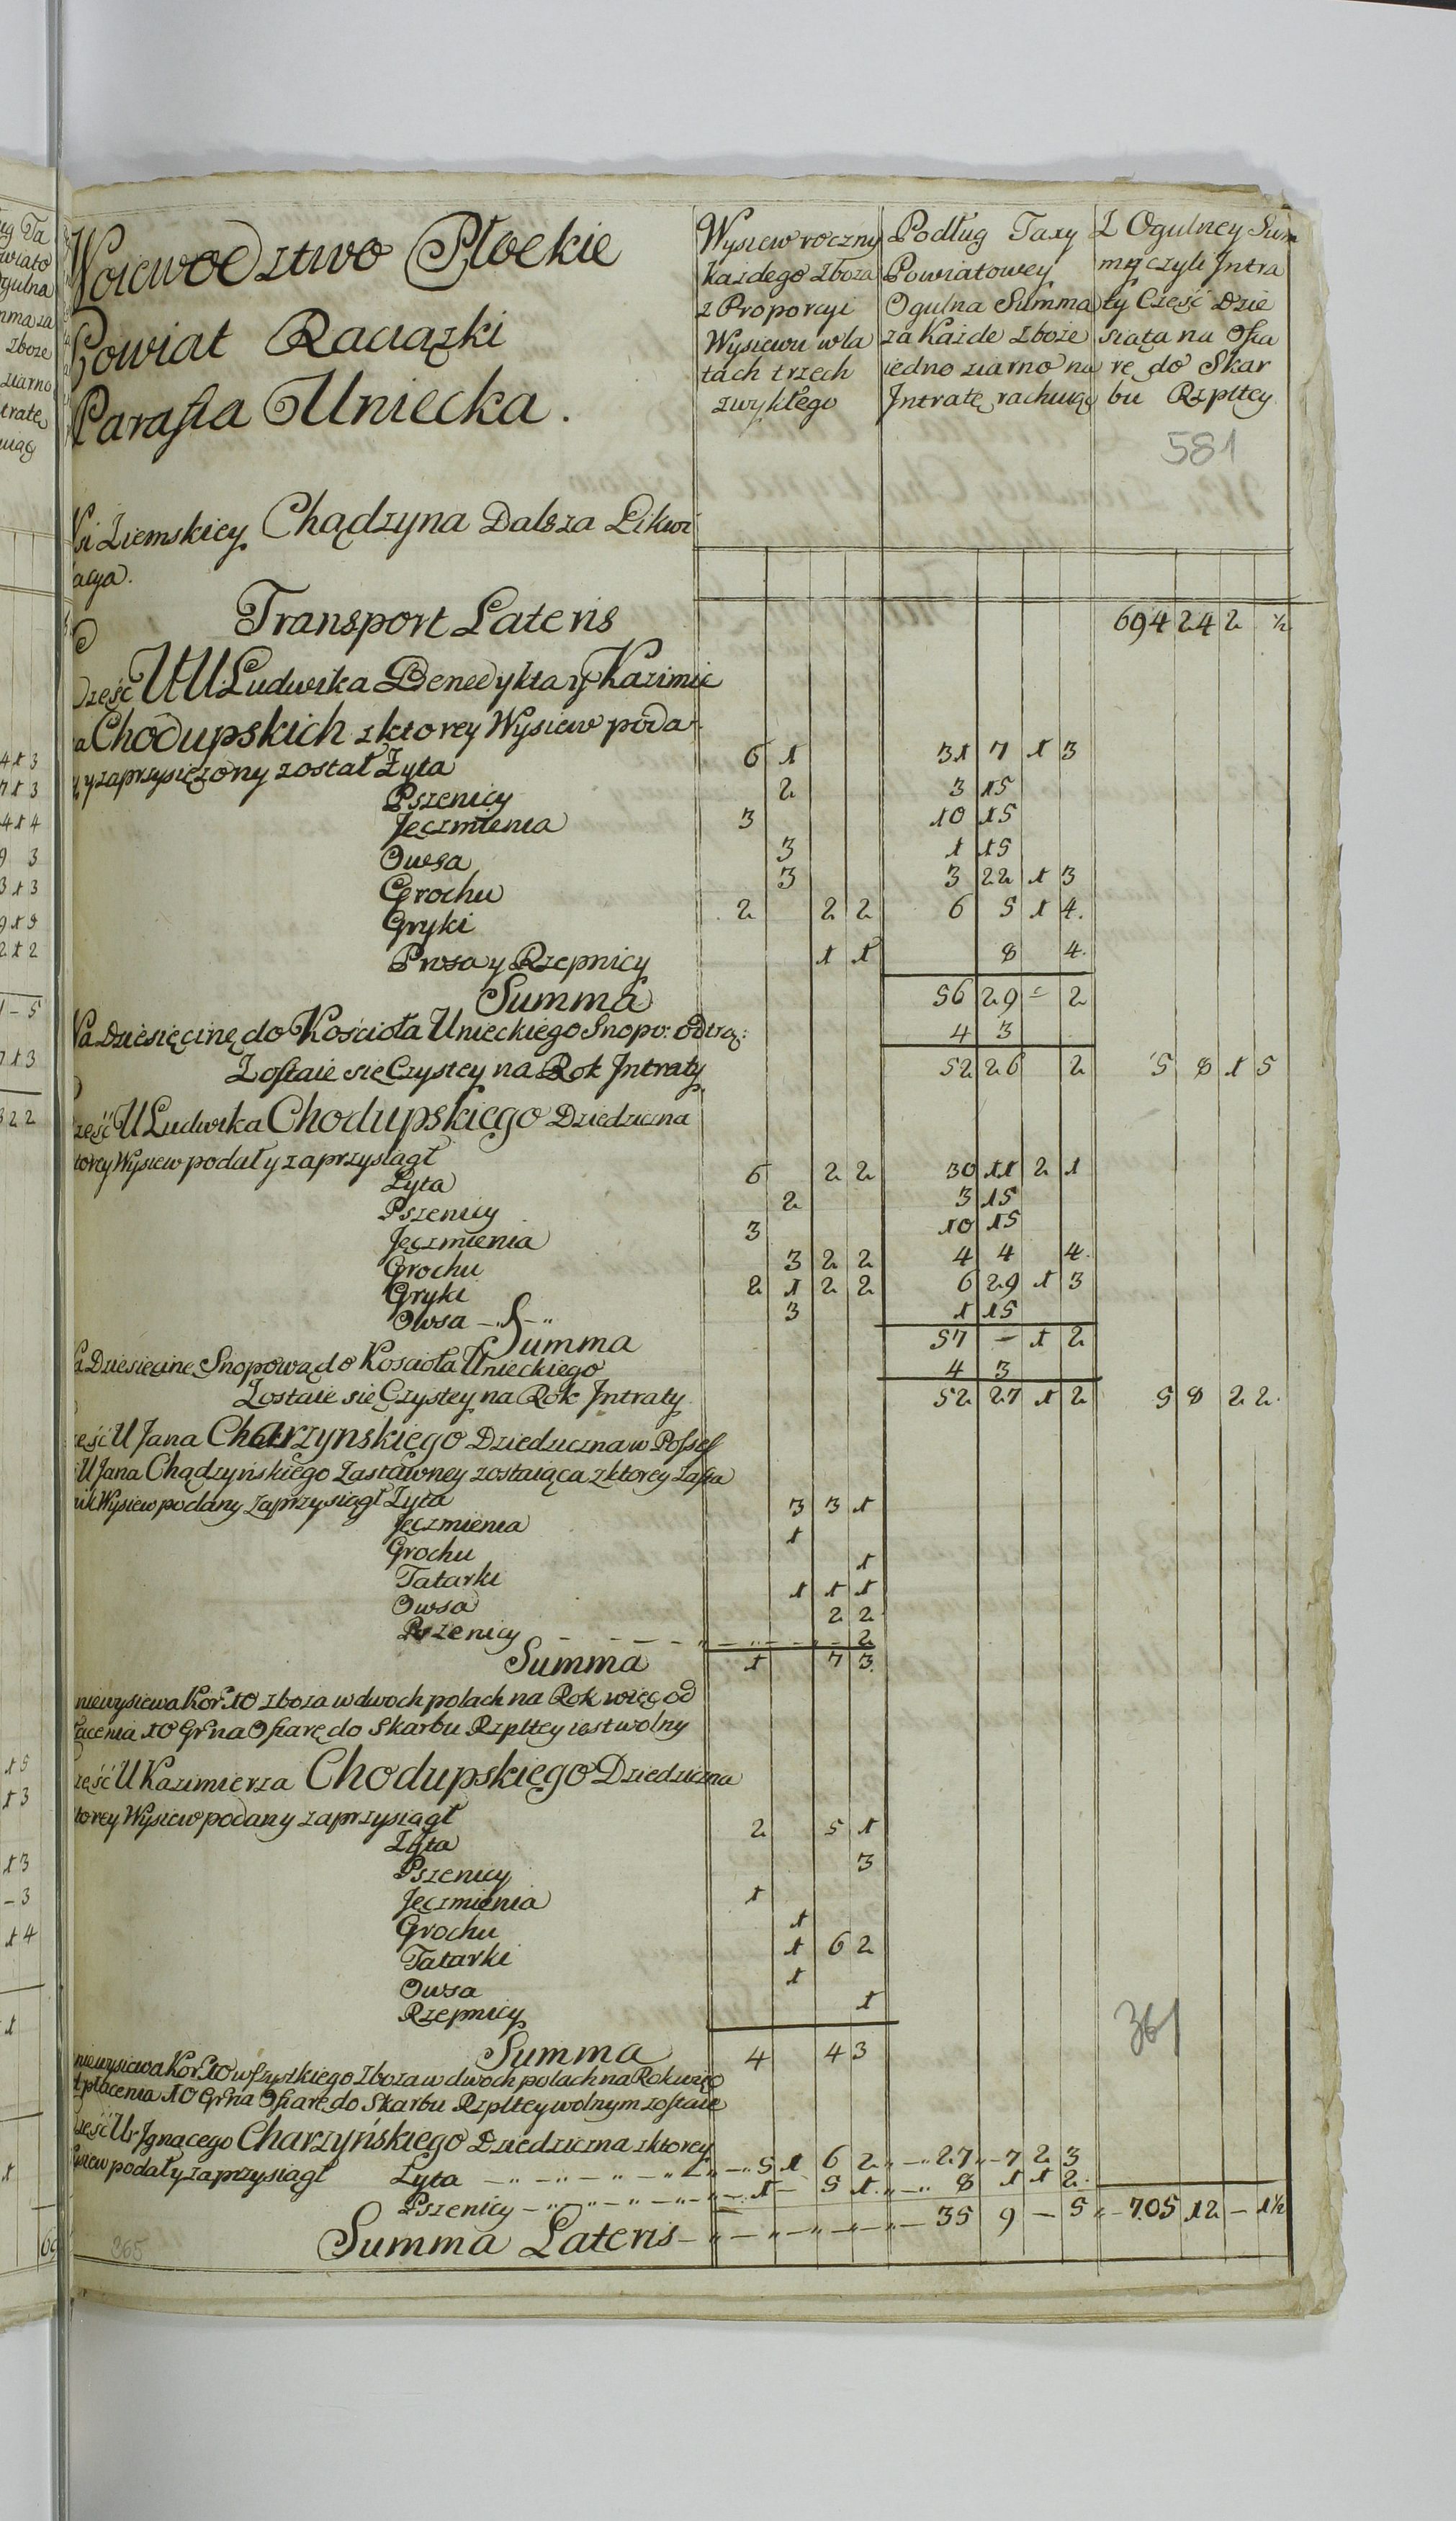 Woiewodztwo Płockie
Powiat Raciązki
Parafia Uniecka.
Wysiew roczny
kazdego zboza
z Proporcyi
Wysiewu w la
tach trzech
zwykłego
Podług Taxy
Powiatowey
Ogulna Summa
za Kazde zboze
iedno ziarno na
Intratę rachuiąc
Z Ogulney Sum
my czyli Intra
ty Częsć Dzie
siąta na Ofia
rę do Skar
bu Rzpltey
581
Wsi Ziemskiey Chądzyna Dalsza Likwi
dacya.
Transport Lateris 694 24 2 ½
Część UU Ludwika Benedykta y Kazimie
ra Chodupskich z ktorey Wysiew poda
ny y zaprzysięzony został Zyta 6 1 31 7 1 3
Pszenicy 2 3 15
Jęczmienia 3 10 15
Owsa 3 1 15
Grochu 3 3 22 1 3
Gryki 2 2 2 6 5 1 4.
Prosa y Rzepnicy 1 1 8 4.
Summa 56 29 - 2
Na Dziesięcinę do Kościoła Unieckiego Snopo: odtrą: 4 3
Zostaie się Czystey na Rok Intraty 52 26 2 5 8 1 5
Część U Ludwika Chodupskiego Dziedziczna
z ktorey Wysiew podał y zaprzysiągł
Zyta 6 2 2 30 11 2 1
Pszenicy 2 3 15
Jęczmienia 3 10 15
Grochu 3 2 2 4 4 4.
Gryki 2 1 2 2 6 29 1 3
Owsa 3 1 15
Summa 57 - 1 2
Na Dziesięcinę Snopową do Kościoła Unieckiego 4 3
Zostaie się Czystey na Rok Intraty 52 27 1 2 5 8 2 2.
Część U Jana Charzynskiego Dziedziczna w Possess
U Jana Chądzyńskiego Zastawney zostaiąca z ktorey Zasta
wnik Wysiew podany Zaprzysiągł Zyta 3 3 1
Jęczmienia 1
Grochu 1
Tatarki 1 1 1
Owsa 2 2
Pszenicy 2
Summa 1 7 3.
niewysiewa Kor: 10 zboza w dwoch polach na Rok więc od
płacenia 10 Gr na Ofiarę do Skarbu Rzpltey iest wolny
Część U Kazimierza Chodupskiego Dziedziczna
z ktorey Wysiew podany zaprzysiągł
Zyta 2 5 1
Pszenicy 3
Jęczmienia 1
Grochu 1
Tatarki 1 6 2
Owsa 1
Rzepnicy 1
361
Summa 4 4 3
niewysiewa Kor: 10 wszystkiego zboza w dwoch polach na Rok więc
od płacenia 10 Gr na Ofiarę do Skarbu Rzpltey wolnym zostaie
Część Ur Ignacego Charzyńskiego Dziedziczna z ktorey
Wysiew podał y zaprzysiągł Zyta 5 1 6 2 27 7 2 3
Pszenicy 1 - 5 1 8 1 1 2.
Summa Lateris 35 9 - 5 705 12 - 1½
365